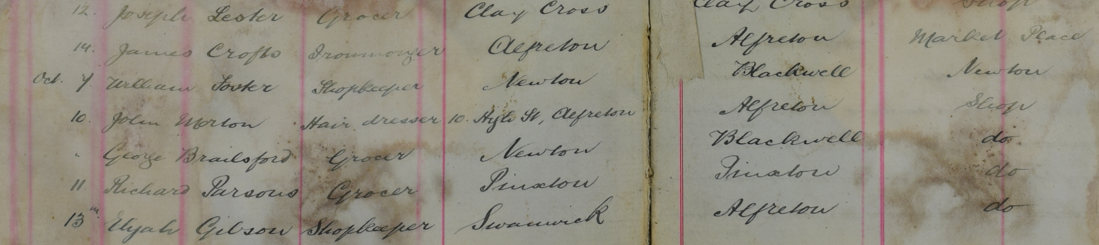 12. Joseph Lester Grocer Clay Cross Clay Cross Shop
14. James Crofts Ironmonger Alfreton Alfreton Market Place
Oct. 7 William Foster Shopkeeper Newton Blackwell Newton
10. John Morton Hair dresser 10. High St, Alfreton Alfreton Shop
" George Brailsford Grocer Newton Blackwell do
11 Richard Parsons Grocer Pinxton Pinxton do
13th Elijah Gibson Shopkeeper Swanwick Alfreton do